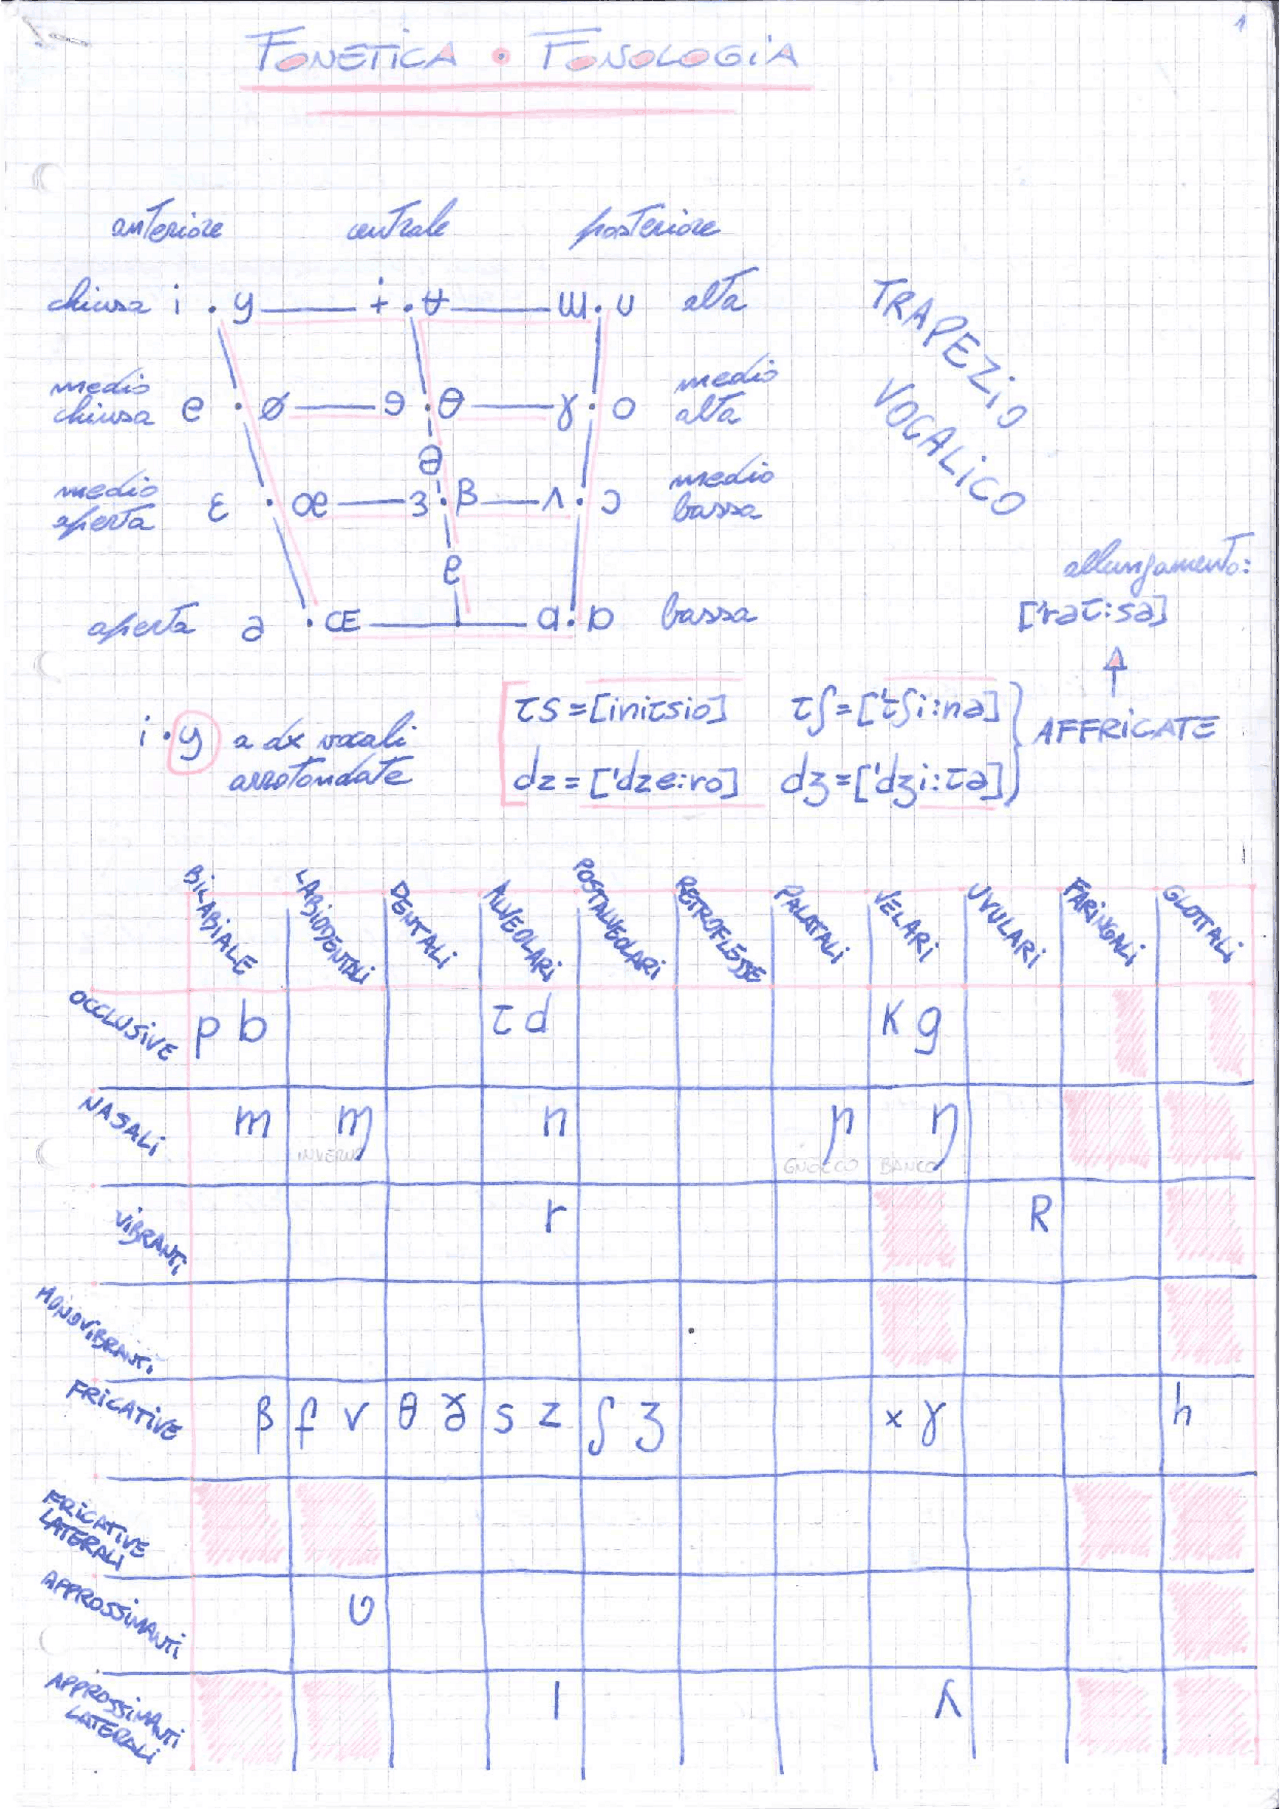 1
FONETICA • FONOLOGIA
anteriore centrale posteriore
chiusa i . y ɨ . ʉ ɯ . u alta
medio chiusa e . ø ɘ . ɵ ɤ . o medio alta
ə
medio aperta ɛ . œ ɜ . β ʌ . ɔ medio bassa
ɐ
aperta a . Œ ɑ . ɒ bassa
TRAPEZIO
VOCALICO
allungamento:
['raτ:sa]
i . y a dx vocali
arrotondate
τs = [iniτsio] τʃ = ['τʃi:na]
dz = ['dze:ro] dʒ = ['dʒi:τa]
AFFRICATE
BILABIALE LABIODENTALI DENTALI ALVEOLARI POSTALVEOLARI RETROFLESSE PALATALI VELARI UVULARI FARINGALI GLOTTALI
OCCLUSIVE p b τ d k g
NASALI m ɱ n ɲ ŋ
INVERNO GNOCCO BANCO
VIBRANTI r R
MONOVIBRANTI
FRICATIVE β f v θ ð s z ʃ ʒ x ɣ h
FRICATIVE
LATERALI
APPROSSIMANTI ʋ
APPROSSIMANTI
LATERALI l ʎ